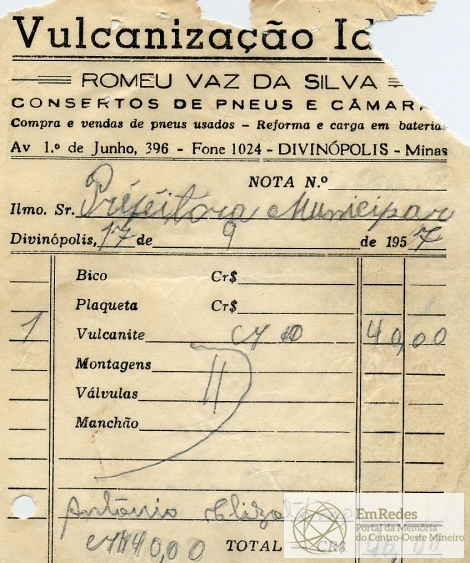 Vulcanização Id
ROMEU VAZ DA SILVA
CONSERTOS DE PNEUS E CÂMAR
Compra e vendas de pneus usados - Reforma e carga em baterias
Av 1.º de Junho, 396 - Fone 1024 - DIVINÓPOLIS - Minas
NOTA N.º
Ilmo. Sr. Préfeitora Municipar
Divinópolis, 17 de 9 de 1957
Bico Cr$
Plaqueta Cr$
1 Vulcanite 40,00
Montagens
Válvulas
Manchão
Antônio
40,00 TOTAL Cr$
EmRedes
Portal da Memória
do Centro-Oeste Mineiro